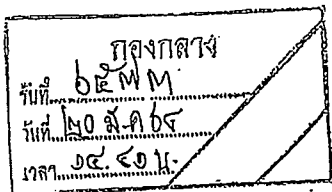 กองกลาง
รับที่ ๖๕๗๓
วันที่ ๒๐ มี.ค ๖๔
เวลา ๑๔.๔๑ น.